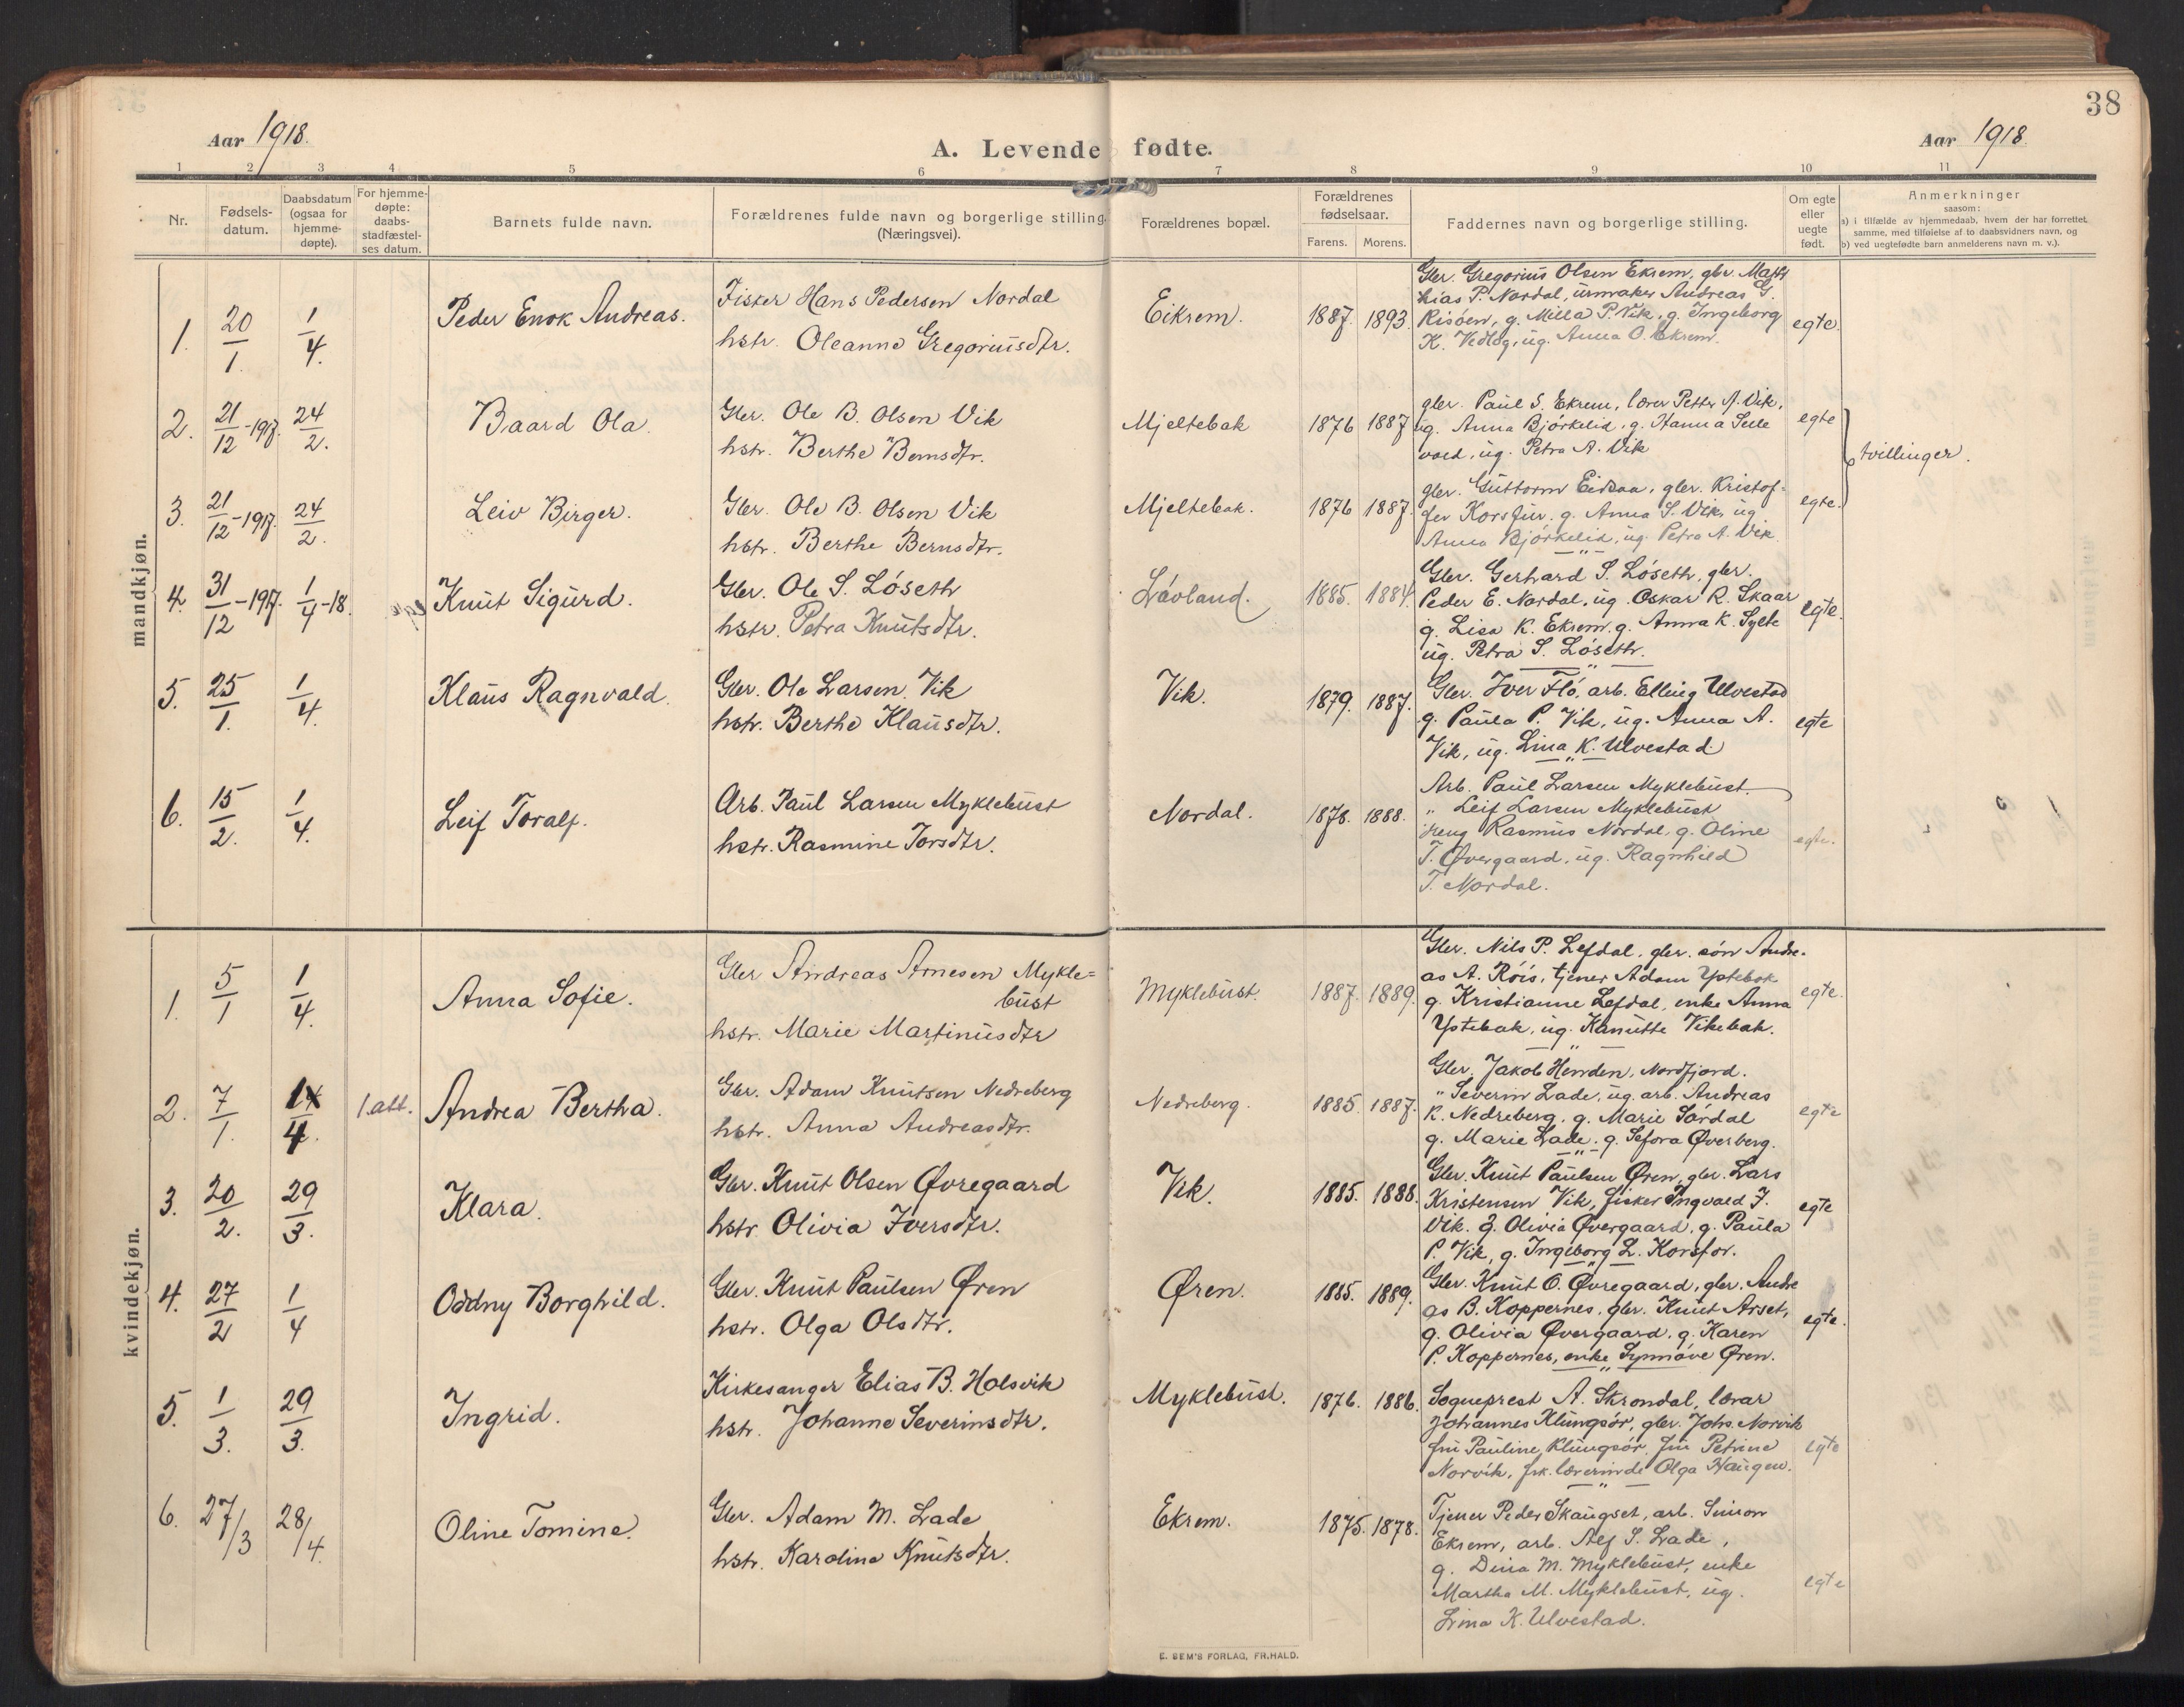 38
Aar 1918.
A. Levende fødte.
Aar 1918.
1 2 3 4 5 6 7 8 9 10 11
Nr.
Fødsels-
datum.
Daabsdatum
(ogsaa for
hjemme-
døpte).
For hjemme-
døpte:
daabs-
stadfæstel-
ses datum.
Barnets fulde navn.
Forældrenes fulde navn og borgerlige stilling
(Næringsvei).
Forældrenes bopæl.
Forældrenes
fødselsaar.
Farens. Morens.
Faddernes navn og borgerlige stilling.
Om egte
eller
uegte
født.
Anmerkninger
saasom:
a) i tilfælde av hjemmedaab, hvem der har forrettet
samme, med tilføielse af to daabsvidners navn, og
b) ved uegtefødte barn anmelderens navn m. v.).
mandkjøn.
1. 20/1. 1/4. Peder Enok Andreas.
Fisker Hans Pedersen Nordal
hstr. Oleanne Gregoriusdtr.
Eikrem. 1887. 1893.
Gbr. Gregorius Olsen Ekrem, gbr. Matt
hias P. Nordal, urmaker Andreas G.
Risøen, g. Milla P. Vik, g. Ingeborg
K. Vedlog, ug. Anna O. Ekrem.
egte.
2. 21/12-1917. 24/2. Baard Ola.
Gbr. Ole B. Olsen Vik
hstr. Berthe Bernsdtr.
Mjeltebak 1876 1887
gbr. Paul S. Ekrem, lærer Petter A. Vik,
ug. Anna Bjørkelid, g. Hanna Selle
vold, ug. Petra A. Vik
egte
tvillinger.
3. 21/12-1917. 24/2. Leiv Birger.
Gbr. Ole B. Olsen Vik
hstr. Berthe Bernsdtr.
Mjeltebak. 1876 1887.
gbr. Guttorm Eidsaa, gbr. Kristof-
fer Korsfur. g. Anna S. Vik, ug
Anna Bjørkelid, ug. Petra A. Vik.
egte.
4. 31/12-1917. 1/4-18. Knut Sigurd.
Gbr. Ole S. Løseth
hstr. Petra Knutsdtr.
Løvland. 1885. 1884.
Gbr. Gerhard S. Løseth, gbr.
Peder E. Nordal, ug. Oskar R. Skaar
g. Lisa K. Ekrem, g. Anna K. Sylte
ug. Petra S. Løseth.
egte.
5. 25/1. 1/4. Klaus Ragnvald.
Gbr. Ole Larsen Vik
hstr. Berthe Klausdtr.
Vik. 1879. 1887.
Gbr. Iver Flø, arb. Elling Ulvestad
g. Paula P. Vik, ug. Anna A.
Vik, ug. Lina K. Ulvestad.
egte
6. 15/2. 1/4. Leif Toralf.
Arb. Paul Larsen Myklebust
hstr. Rasmine Torsdtr.
Nordal. 1878. 1888.
Arb. Paul Larsen Myklebust.
" Leif Larsen Myklebust
dreng Rasmus Nordal, g. Oline
T. Øvergaard, ug. Ragnhild
T. Nordal.
egte.
kvindekjøn.
1. 5/1 1/4. Anna Sofie.
Gbr Andreas Arnesen Mykle=
bust
hstr. Marie Martinusdtr
Myklebust. 1887. 1889.
Gbr. Nils P. Lefdal, gbr. søn Andre-
as A. Røis, tjener Adam Ystebok
g. Kristianne Lefdal, enke Anna
Ystebak, ug. Kanutte Vikebak.
egte.
2. 7/1. 1/4. 1.alt. Andrea Bertha.
Gbr. Adam Knutsen Nedreberg
hstr. Anna Andreasdtr.
Nedreberg. 1885. 1887.
Gbr. Jakob Henden, Nordfjord.
" Severin Lade, ug. arb. Andreas
K. Nedreberg, g. Marie Sørdal
g. Marie Lade, g. Sefora Øverberg.
egte
3. 20/2. 29/3. Klara.
Gbr. Knut Olsen Øvregaard
hstr. Olivia Iversdtr.
Vik. 1885. 1888.
Gbr. Knut Paulsen Øren, gbr. Lars
Kristensen Vik, fisker Ingvald J.
Vik. g. Olivia Øvergaard, g. Paula
P. Vik, g. Ingeborg L. Korsfor.
egte
4. 27/2 1/4 Oddny Borghild.
Gbr. Knut Paulsen Øren
hstr. Olga Olsdtr.
Øren. 1885. 1889.
Gbr. Knut O. Øvregaard, gbr. Andre
as B. Koppernes, gbr. Knut Arset,
g. Olivia Øvergaard, g. Karen
P. Koppernes, enke Synnøve Øren.
egte.
5. 1/3. 29/3. Ingrid.
Kirkesanger Elias B. Holsvik
hstr. Johanne Severinsdtr.
Myklebust. 1876. 1886.
Sogneprest A. Skrondal, lærar
Johannes Klungsør, gbr. Johs. Norvik
fru Pauline Klungsør, fru Petrine
Norvik, frk. lærerinde Olga Haugen.
egte
6. 27/3 28/4. Oline Tomine.
Gbr. Adam M. Lade
hstr. Karoline Knutsdtr.
Ekrem. 1875. 1878.
Tjener Peder Skaugset, arb. Simon
Ekrem, arb. Alf S. Lade,
g. Dina M. Myklebust, enke
Martha M. Myklebust, ug.
Lina K. Ulvestad.
egte
E. SEM'S FORLAG, FR.HALD.